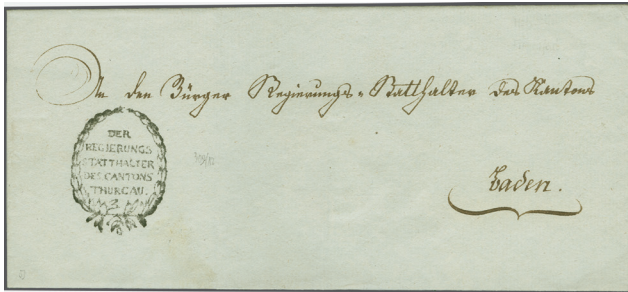 An den Bürger Regierungs-Statthalter des Kantons
DER
REGIERUNGS
STATTHALTER
DES CANTONS
THURGAU.
Baden.